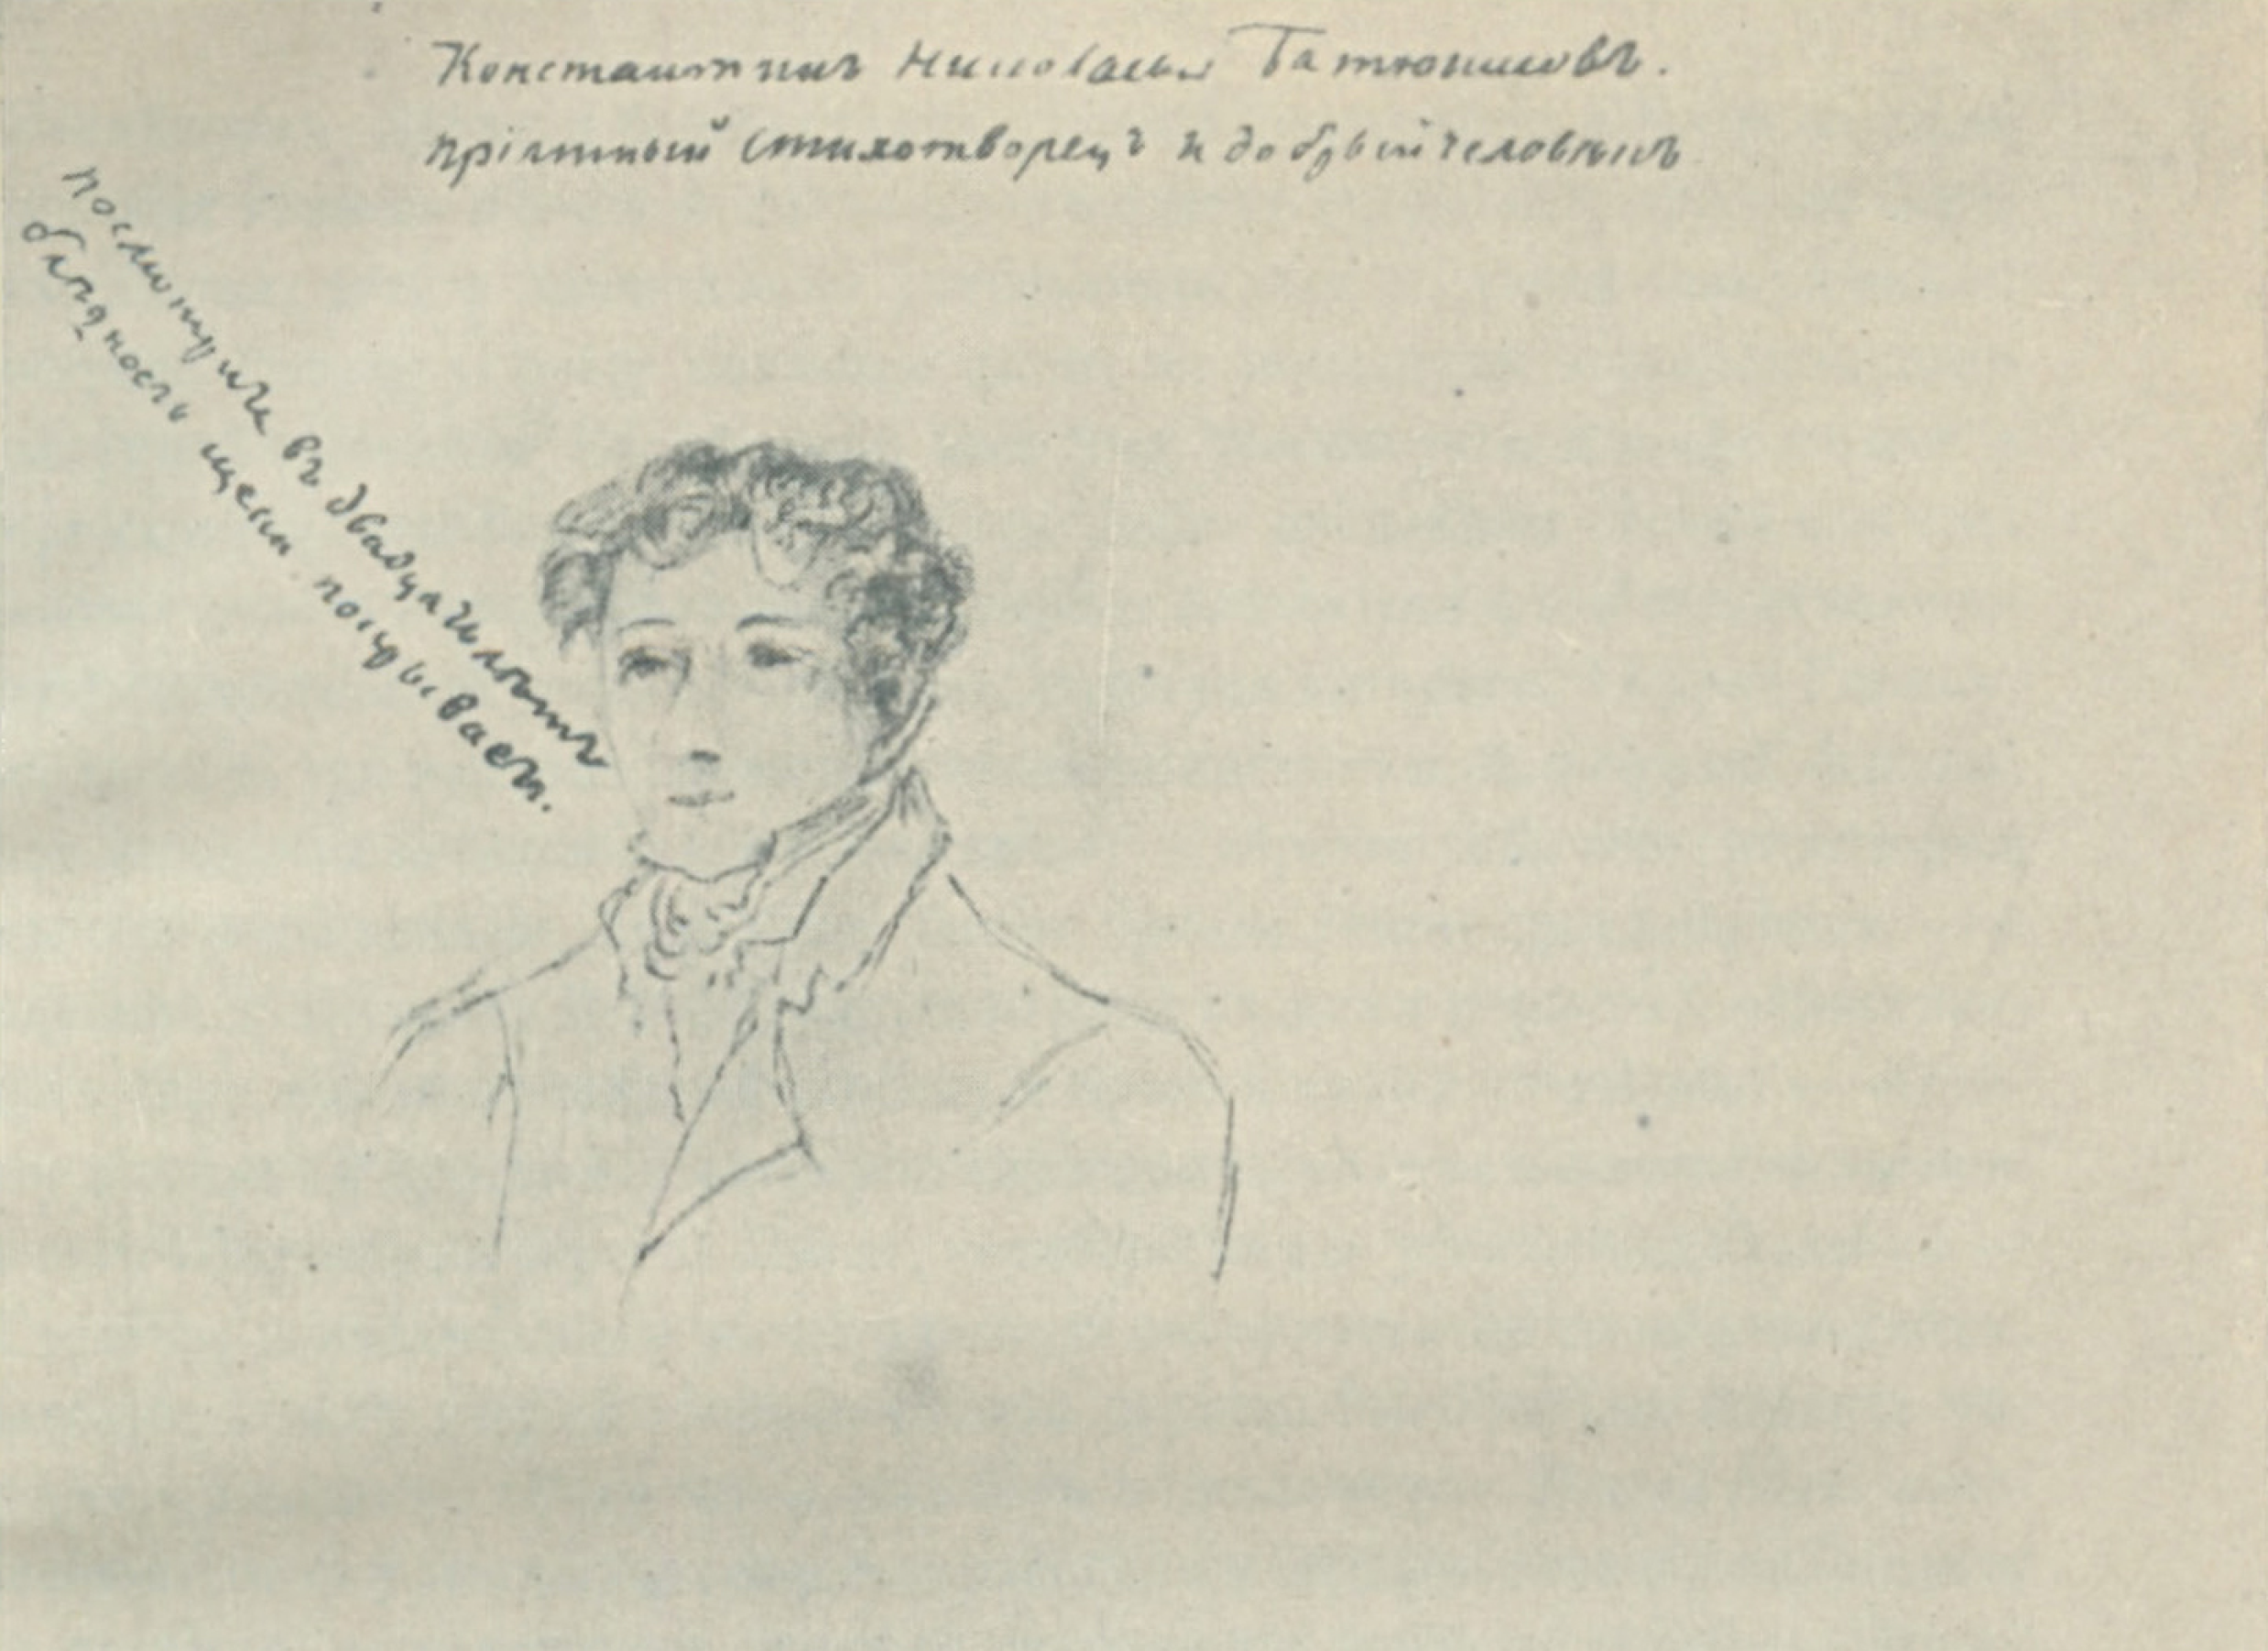 Константинъ Николаевъ Батюшковъ.
пріятный стихотворецъ и добрый человѣкъ
посмотрите въ двадцать лѣтъ
блѣдность щеки покрываетъ.